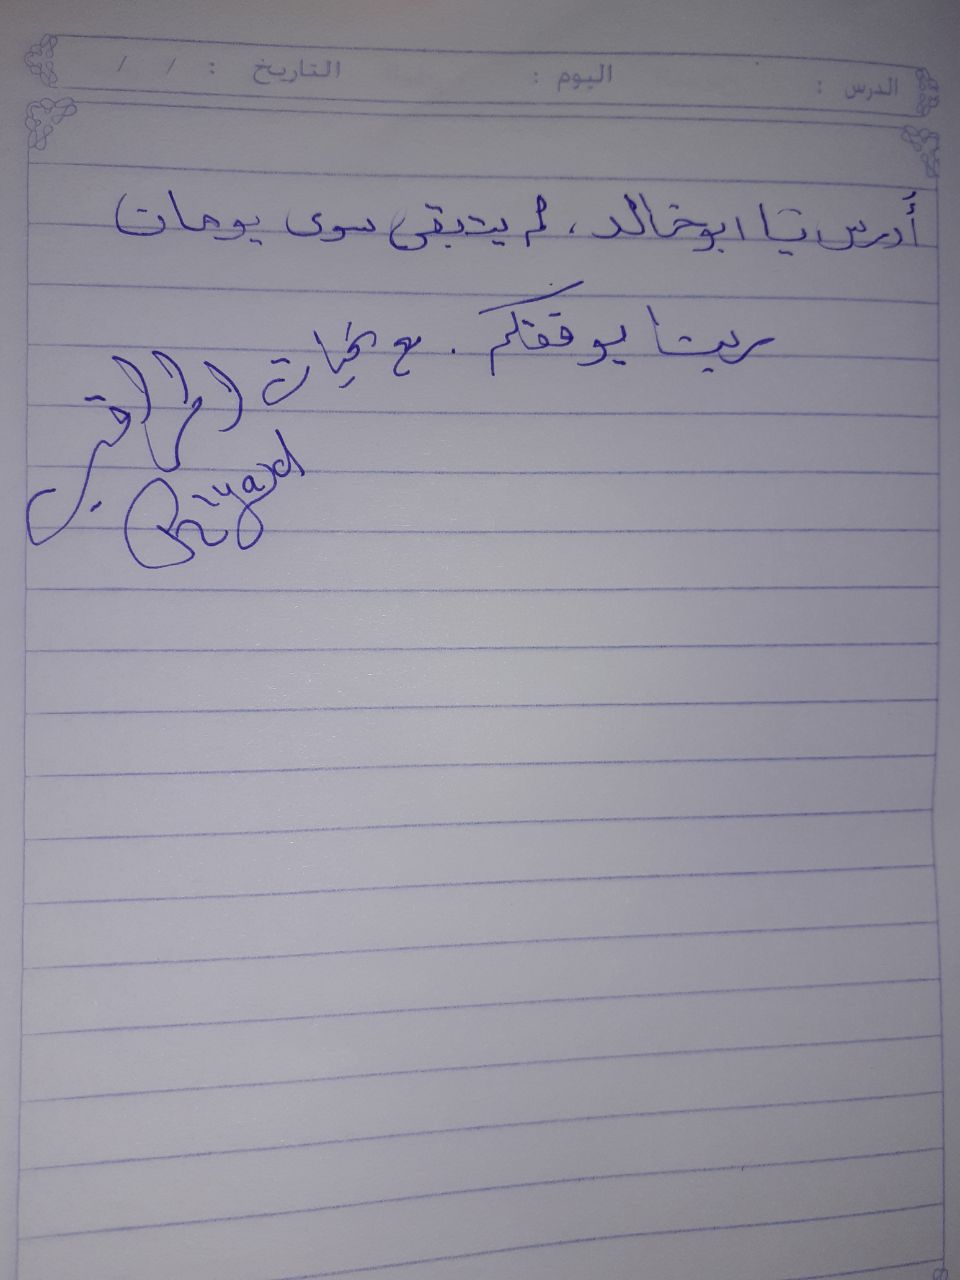 الدرس : اليوم : التاريخ : / /
أدرس يا ابو خالد، لم يتبقى سوى يومان
ربنا يوفقكم . مع تحيات
Riyad